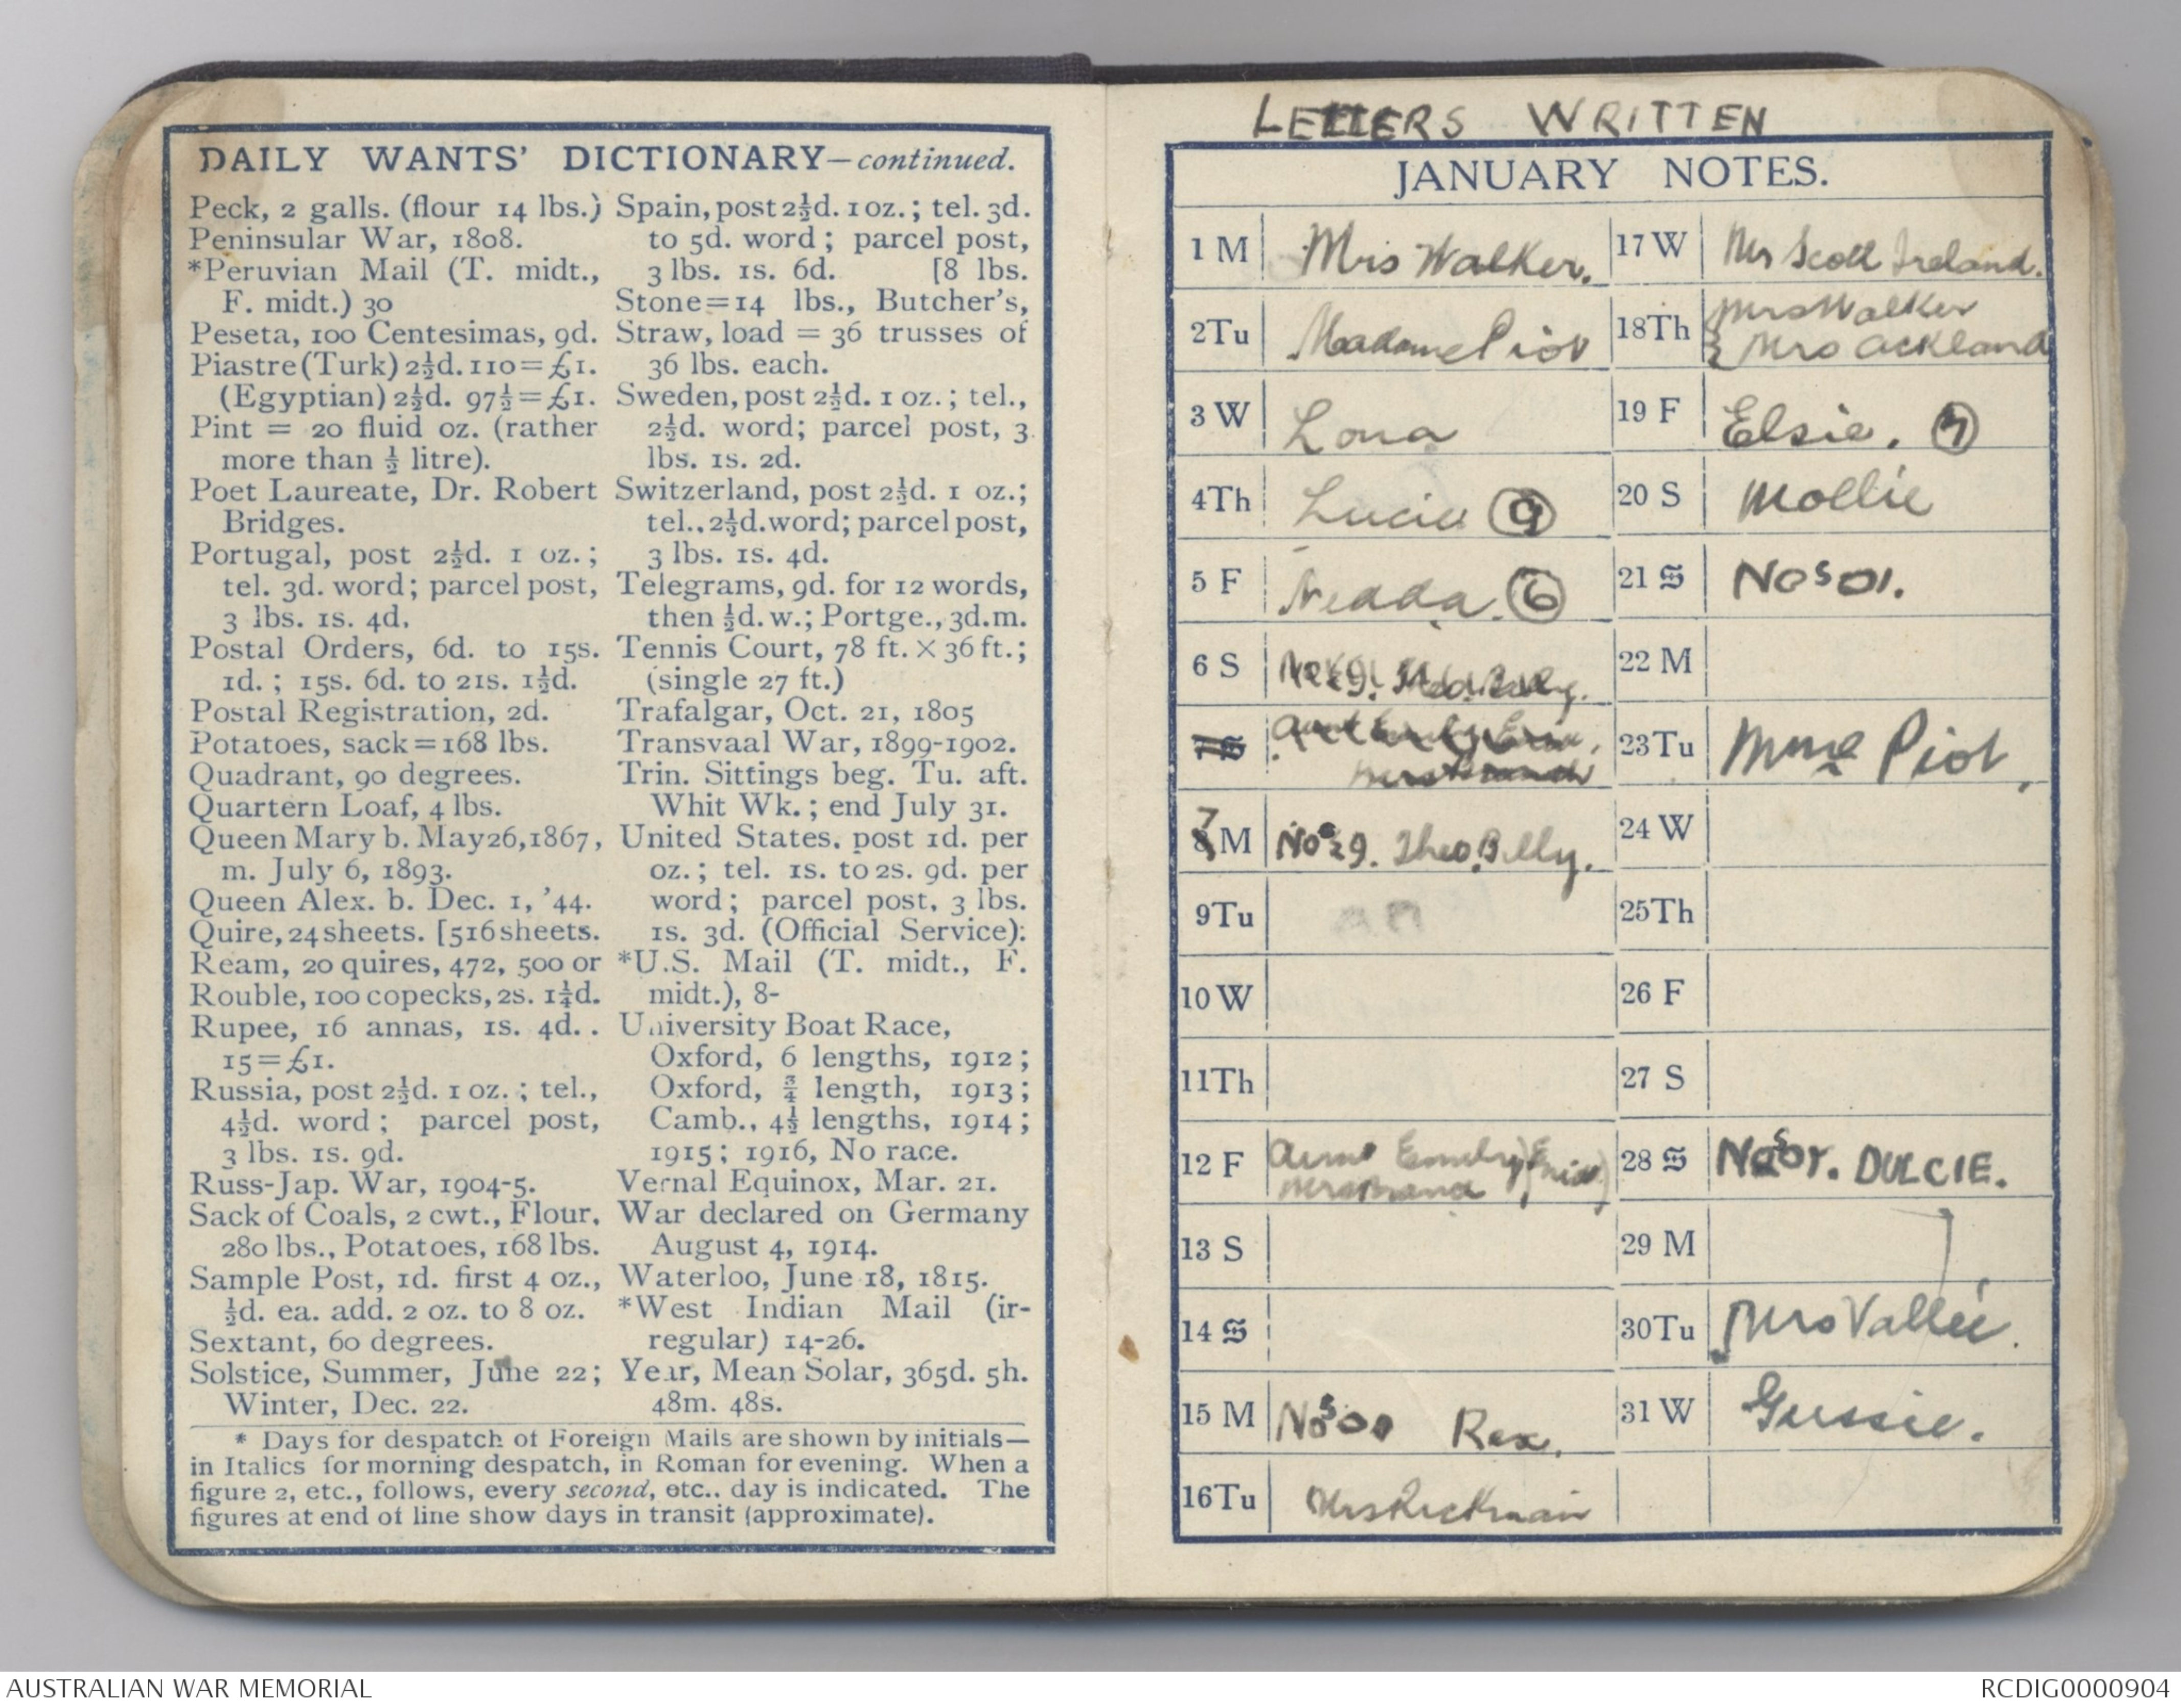 DAILY WANTS' DICTIONARY—continued.
Peck, 2 galls. (flour 14 lbs.)
Peninsular War, 1808.
*Peruvian Mail (T. midt.,
F. midt.) 30
Peseta, 100 Centesimas, 9d.
Piastre (Turk) 2½d. 110=£1.
(Egyptian) 2½d. 97½=£1.
Pint = 20 fluid oz. (rather
more than ½ litre).
Poet Laureate, Dr. Robert
Bridges.
Portugal, post 2½d. 1 oz.;
tel. 3d. word; parcel post,
3 lbs. 1s. 4d.
Postal Orders, 6d. to 15s.
1d.; 15s. 6d. to 21s. 1½d.
Postal Registration, 2d.
Potatoes, sack=168 lbs.
Quadrant, 90 degrees.
Quartern Loaf, 4 lbs.
Queen Mary b. May 26, 1867,
m. July 6, 1893.
Queen Alex. b. Dec. 1, '44.
Quire, 24 sheets. [516 sheets.
Ream, 20 quires, 472, 500 or
Rouble, 100 copecks, 2s. 1¼d.
Rupee, 16 annas, 1s. 4d..
15=£1.
Russia, post 2½d. 1 oz.; tel.,
4½d. word; parcel post,
3 lbs. 1s. 9d.
Russ-Jap. War, 1904-5.
Sack of Coals, 2 cwt., Flour,
280 lbs., Potatoes, 168 lbs.
Sample Post, 1d. first 4 oz.,
½d. ea. add. 2 oz. to 8 oz.
Sextant, 60 degrees.
Solstice, Summer, June 22;
Winter, Dec. 22.
Spain, post 2½d. 1 oz.; tel. 3d.
to 5d. word; parcel post,
3 lbs. 1s. 6d. [8 lbs.
Stone=14 lbs., Butcher's,
Straw, load = 36 trusses of
36 lbs. each.
Sweden, post 2½d. 1 oz.; tel.,
2½d. word; parcel post, 3
lbs. 1s. 2d.
Switzerland, post 2½d. 1 oz.;
tel., 2½d. word; parcel post,
3 lbs. 1s. 4d.
Telegrams, 9d. for 12 words,
then ½d. w.; Portge., 3d. m.
Tennis Court, 78 ft. × 36 ft.;
(single 27 ft.)
Trafalgar, Oct. 21, 1805
Transvaal War, 1899-1902.
Trin. Sittings beg. Tu. aft.
Whit Wk.; end July 31.
United States, post 1d. per
oz.; tel. 1s. to 2s. 9d. per
word; parcel post, 3 lbs.
1s. 3d. (Official Service):
*U.S. Mail (T. midt., F.
midt.), 8-
University Boat Race,
Oxford, 6 lengths, 1912;
Oxford, ¾ length, 1913;
Camb., 4½ lengths, 1914;
1915; 1916, No race.
Vernal Equinox, Mar. 21.
War declared on Germany
August 4, 1914.
Waterloo, June 18, 1815.
*West Indian Mail (ir-
regular) 14-26.
Year, Mean Solar, 365d. 5h.
48m. 48s.
* Days for despatch of Foreign Mails are shown by initials—
in Italics for morning despatch, in Roman for evening. When a
figure 2, etc., follows, every second, etc., day is indicated. The
figures at end of line show days in transit (approximate).
LETTERS WRITTEN
JANUARY NOTES.
1 M Mrs Walker.
2 Tu Madame Piot
3 W Lona
4 Th Lucie 9
5 F Nedda. 6
6 S
7 S
7 8 M Nos 29. Theo. Billy.
9 Tu
10 W
11 Th
12 F Aunt Emily (Enid)
Mrs Brand
13 S
14 S
15 M Nos 00 Rex.
16 Tu Mrs Rickman
17 W Mr Scott Ireland.
18 Th Mrs Walker
Mrs Ackland
19 F Elsie. 7
20 S Mollie
21 S Nos 01.
22 M
23 Tu Mme Piot,
24 W
25 Th
26 F
27 S
28 S DULCIE.
29 M
30 Tu Mrs Vallée.
31 W Gussie.
AUSTRALIAN WAR MEMORIAL
RCDIG0000904